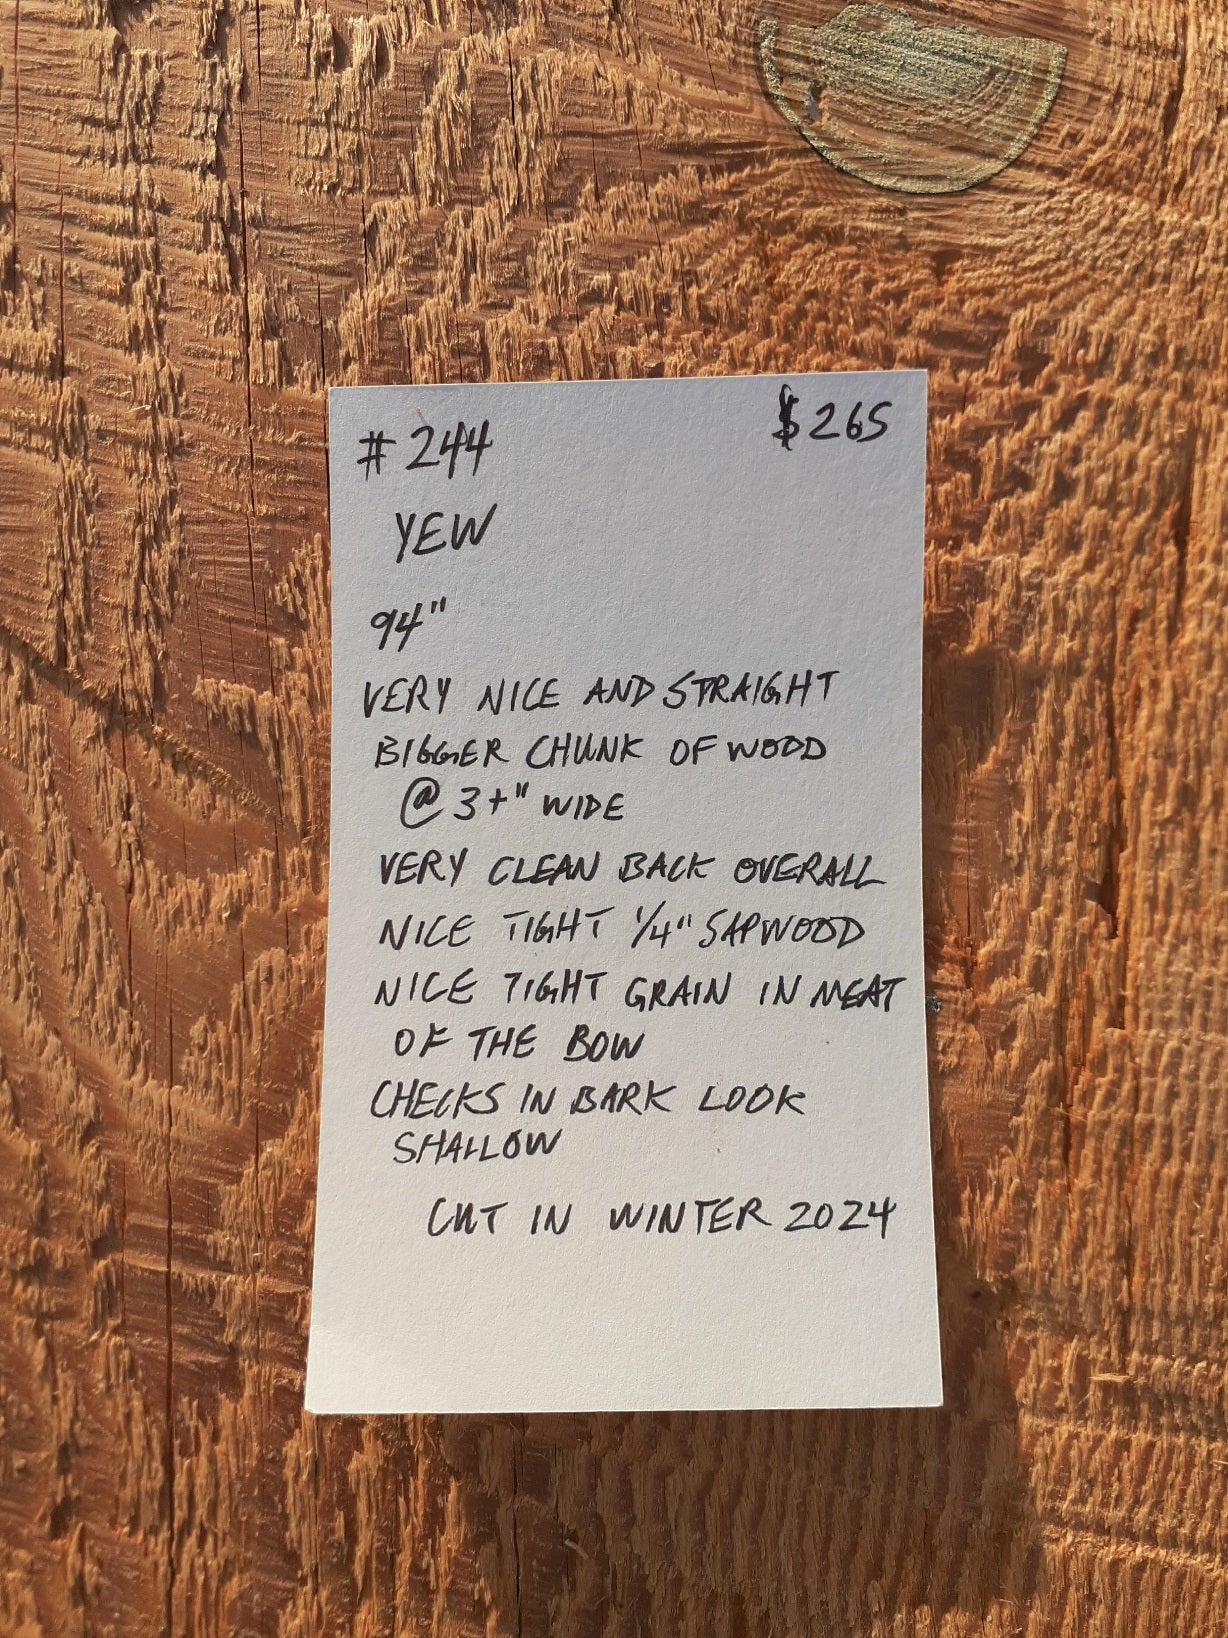 #244 $265
YEW
94"
VERY NICE AND STRAIGHT
BIGGER CHUNK OF WOOD
@ 3+" WIDE
VERY CLEAN BACK OVERALL
NICE TIGHT 1/4" SAPWOOD
NICE TIGHT GRAIN IN MEAT
OF THE BOW
CHECKS IN BARK LOOK
SHALLOW
CUT IN WINTER 2024